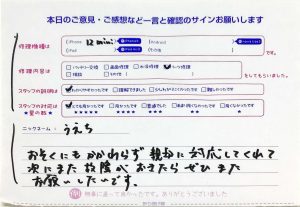 本日のご意見・ご感想など一言と確認のサインお願いします
修理機種は
iPhone 12 mini
iPad
Android
その他
修理内容は
バッテリー交換
液晶修理
をしてもらいました。
スタッフの説明は
わかりやすかったです
理解できました
少しわかりにくかったです
難しかったです
スタッフの対応は
とても良かったです
良かったです
普通でした
★星の数★
ニックネーム：うえち
おそくにもかかわらず 親切に対応してくれて
次にまた故障がおきたらぜひまた
お願いしたいです。
無事に直って良かったです。ありがとうございました